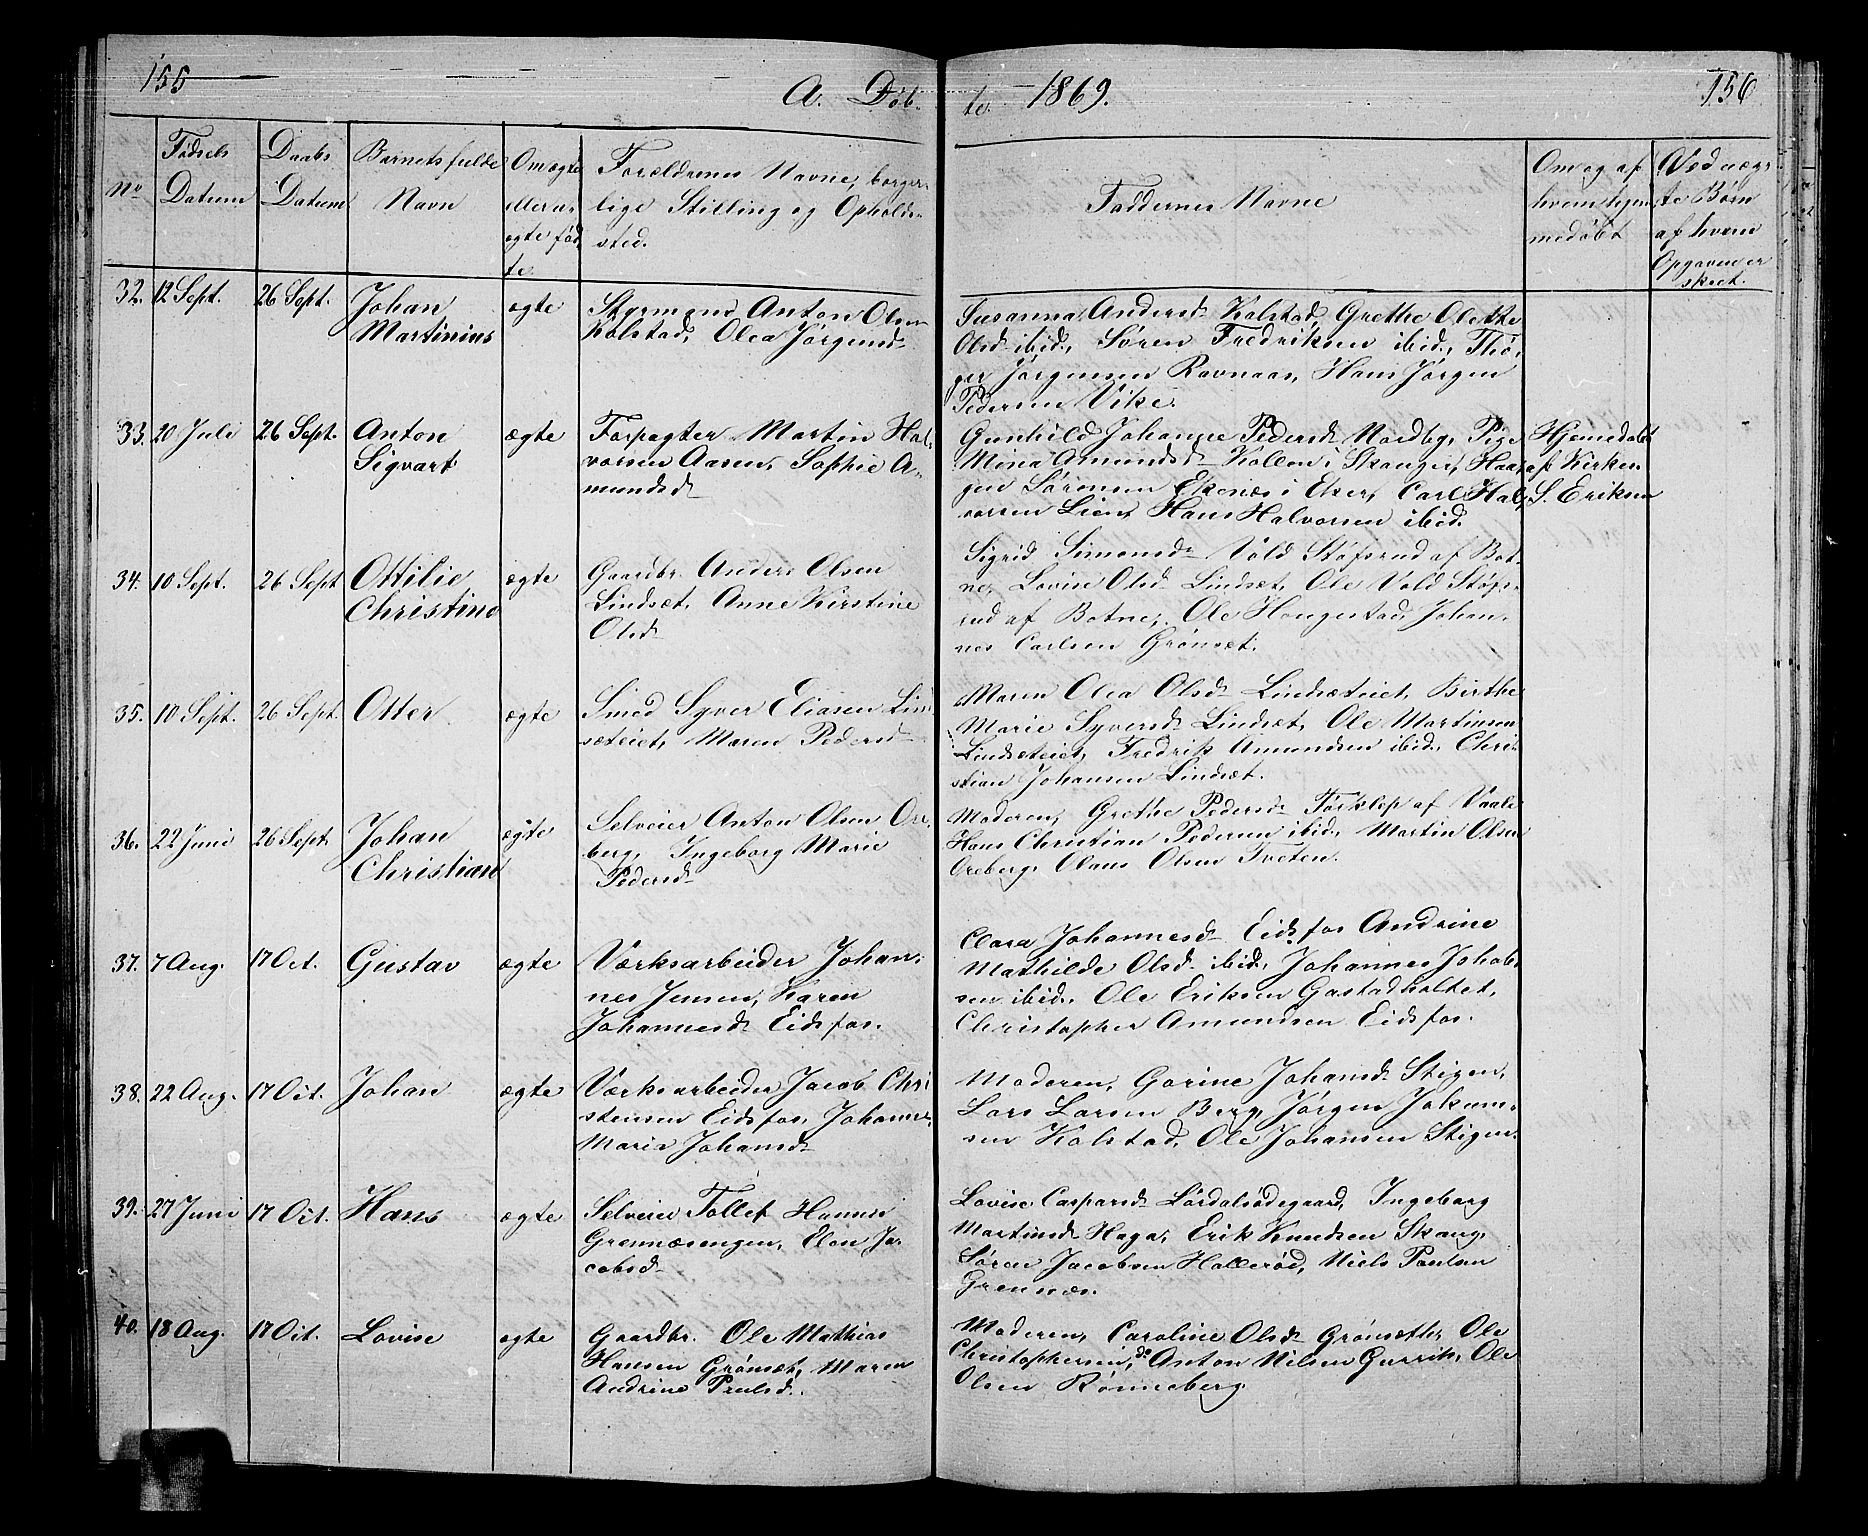 155
A. Døb-
te. 1869.
156
No
Fødsels
Datum
Daabs
Datum
Barnets fulde
Navn
Om ægte
eller u-
ægte fød-
te.
Forældrenes Navne, borger-
lige Stilling og Opholds-
sted.
Faddernes Navne
Om og af
hvem hjem-
medøbt
Ved uæg-
te Børn
af hvem
Opgaven er
skeet.
32. 12 Sept. 26 Sept. Johan
Martinius
ægte
Styrmand Anton Olsen
Kolstad, Olea Jørgensd
Susanna Andersd Kolstad, Grethe Olette
Olsd ibid., Søren Fredriksen ibid., Thø-
ger Jørgensen Ravnaas, Hans Jørgen
Pedersen Vike.
33. 20 Juli 26 Sept. Anton
Sigvart
ægte
Forpagter Martin Hal-
vorsen Aasen, Sophie A-
mundsd
Gunhild Johanne Pedersd Nordby, Pige
Mina Amundsd Kollen i Skanger, Haa-
gen Sørensen Ekenæs i Eker, Carl Hal-
vorsen Lien, Hans Halvorsen ibid.
Hjemedøbt
af Kirkes.
S. Eriksen
34. 10 Sept. 26 Sept Ottilie
Christine
ægte
Gaardbr. Anders Olsen
Lindsæt, Anne Kirstine
Olsd
Sigrid Simonsd Vold Støfsrud af Bot-
ne, Lovise Olsd Lindsæt, Ole Vold Støfs-
rud af Botne, Ole Haugestad, Johan-
nes Carlsen Grønsæt.
35. 10 Sept. 26 Sept. Otter
ægte
Smed Syver Eliasen Lind-
sæteiet, Maren Pedersd
Maren Olea Olsd Lindsæteiet, Birthe
Marie Syversd Lindsæt, Ole Martinsen
Lindsæteiet, Fredrik Amundsen ibid., Chri-
stian Johansen Lindsæt.
36. 22 Juni 26 Sept. Johan
Christian
ægte
Selveier Anton Olsen Ore-
berg, Ingeborg Marie
Pedersd
Moderen, Grethe Pedersd Foskløp af Vaale
Hans Christian Pedersen ibid., Martin Olsen
Oreberg, Olaus Olsen Tveten.
37. 7 Aug. 17 Oct. Gustav
ægte
Værksarbeider Johan-
nes Jensen, Karen
Johannesd Eidsfos.
Clara Johannesd Eidsfos Andrine
Mathilde Olsd ibid., Johannes Jakob-
sen ibid., Ole Eriksen Gastadholtet,
Christopher Amundsen Eidsfos.
38. 22 Aug. 17 Oct. Johan
ægte
Værksarbeider Jacob Chri-
stensen Eidsfos, Johanne
Maria Johansd
Moderen, Gorine Johansd Stigen,
Lars Larsen Berg, Jørgen Jokum-
sen Kolstad, Ole Johansen Stigen.
39. 27 Juni 17 Oct. Hans
ægte
Selveier Tollef Hansen
Grennæsengen, Elen Ja-
cobsd
Lovise Caspersd Lørdalsødegaard, Ingeborg
Martinsd Haga, Erik Knudsen Skaug,
Søren Jacobsen Hallerød, Niels Paulsen
Grennæs.
40. 18 Aug. 17 Oct. Lovise
ægte
Gaardbr. Ole Mathias
Hansen Grønsæt, Maren
Andrine Paulsd.
Moderen, Caroline Olsd Grønsæth, Ole
Christophersen do, Anton Nilsen Gurrik, Ole
Olsen Rønneberg